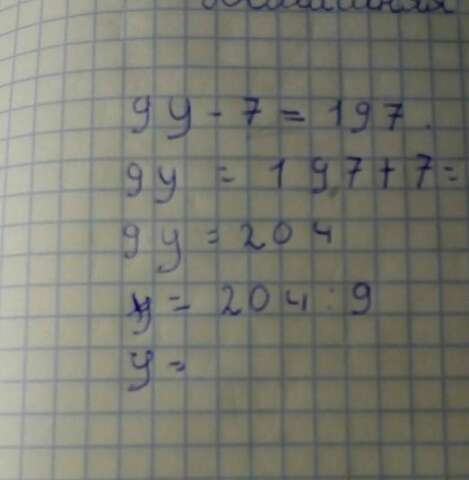 9y - 7 = 197.
9y = 197 + 7 =
9y = 204
y = 204 : 9
y =